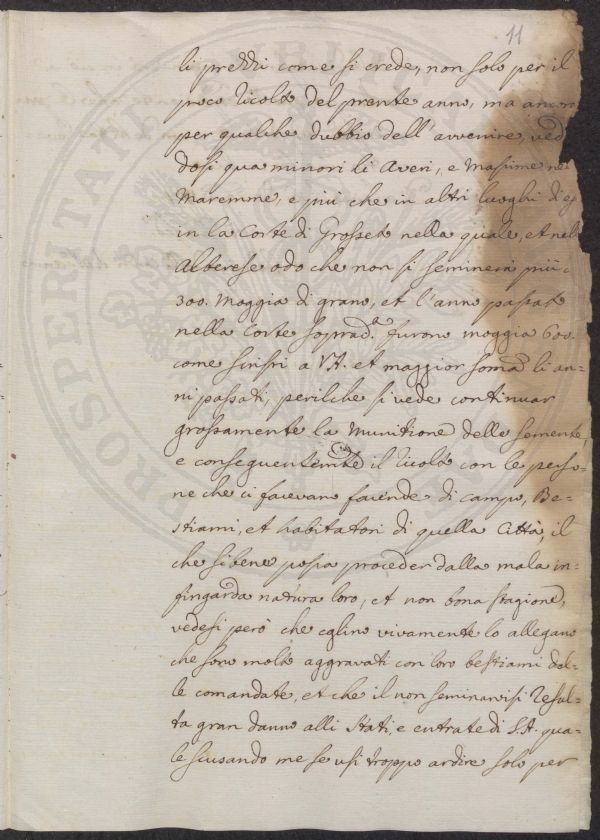 11
li prezzi come si crede, non solo per il
poco ricolto del pñte anno, ma ancora
per qualche dubbio dell'avvenire, ved
dosi qua minori li averi, e massime ne
Maremme, e più che in altri luoghi di
in la Corte di Grosseto nella quale, et nell
Alberese odo che non si seminerà più
300. moggia di grano, et l'anno passato
nella Corte soprad.ª furono moggia 600.
come scrissi a V.A. et maggior soma li an=
ni passati, perilche si vede continuar
grossamente la munitione delle semente,
e conseguentemte il ricolto con le perso=
ne che ci facevano faiende di campo, Be=
stiami, et habitatori di quella Città, il
che sibene possa proceder dalla mala in=
fingarda natura loro, et non bona stagione,
vedesi però che eglino vivamente lo allegano
che sono molto aggravati con loro bestiami dal=
le comandate, et che il non seminarvisi resul=
ta gran danno alli stati, e entrate di S.A. qua=
le scusando me se usi troppo ardire solo per
PROSPERITATI PUBLICAE